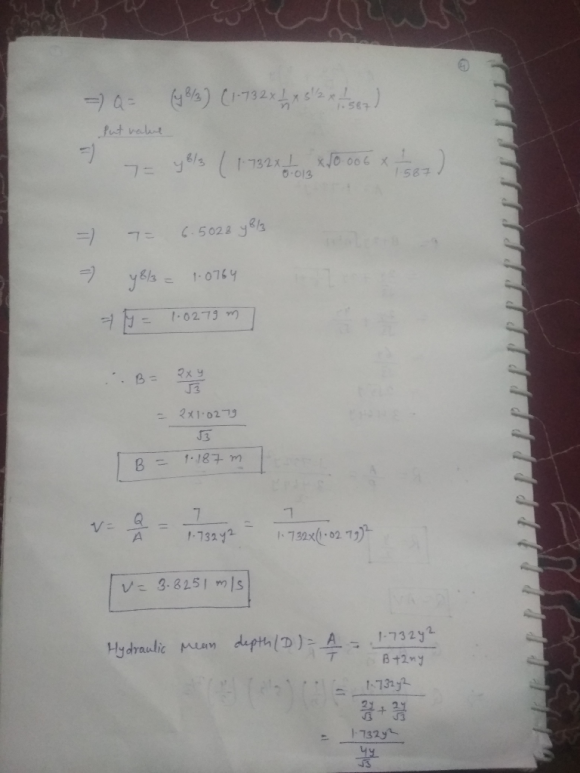 ⇒ Q = (y^8/3) (1.732 × 1/n × s^1/2 × 1/1.587)
Put value
⇒ 7 = y^8/3 (1.732 × 1/0.013 × √0.006 × 1/1.587)
⇒ 7 = 6.5028 y^8/3
⇒ y^8/3 = 1.0764
⇒ y = 1.0279 m
∴ B = 2×y/√3
= 2×1.0279/√3
B = 1.187 m
V = Q/A = 7/1.732y² = 7/1.732×(1.0279)²
V = 3.8251 m/s
Hydraulic mean depth (D) = A/T = 1.732y²/B+2ny
= 1.732y²/2y/√3 + 2y/√3
= 1.732y²/4y/√3